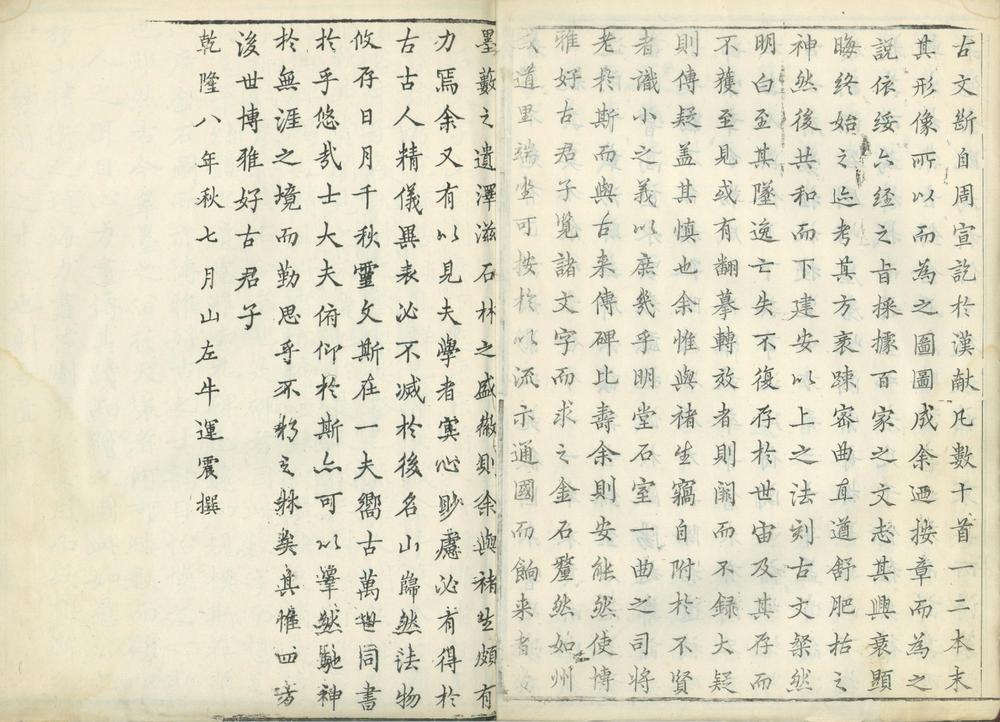 古文斷自周宣訖於漢獻凡數十首一二本末
其形像所以而為之圖圖成余迺按章而為之
說依綏六經之旨採據百家之文志其興衰顯
晦終始之迹考其方袤踈密曲直道舒肥枯之
神然後共和而下建安以上之法刻古文粲然
明白至其墜逸亡失不復存於世宙及其存而
不獲至見或有翻摹轉效者則闕而不録大疑
則傳疑盖其慎也余惟與禇生竊自附於不賢
者識小之義以庶幾乎明堂石室一曲之司將
老於斯而與古来傳碑比壽余則安能然使博
雅好古君子覽諸文字而求之金石釐然如州
道里端坐可按於以流示通國而餉来者
墨藪之遺澤滋石林之盛徽則余與禇生頗有
力焉余又有以見夫學者寔心眇慮必有得於
古古人精儀異表必不减於後名山巋然法物
攸存日月千秋靈文斯在一夫嚮古萬世同書
於乎悠哉士大夫俯仰於斯亦可以睪然馳神
於無涯之境而勤思乎不朽之躰矣其惟四方
後世博雅好古君子
乾隆八年秋七月山左牛運震撰